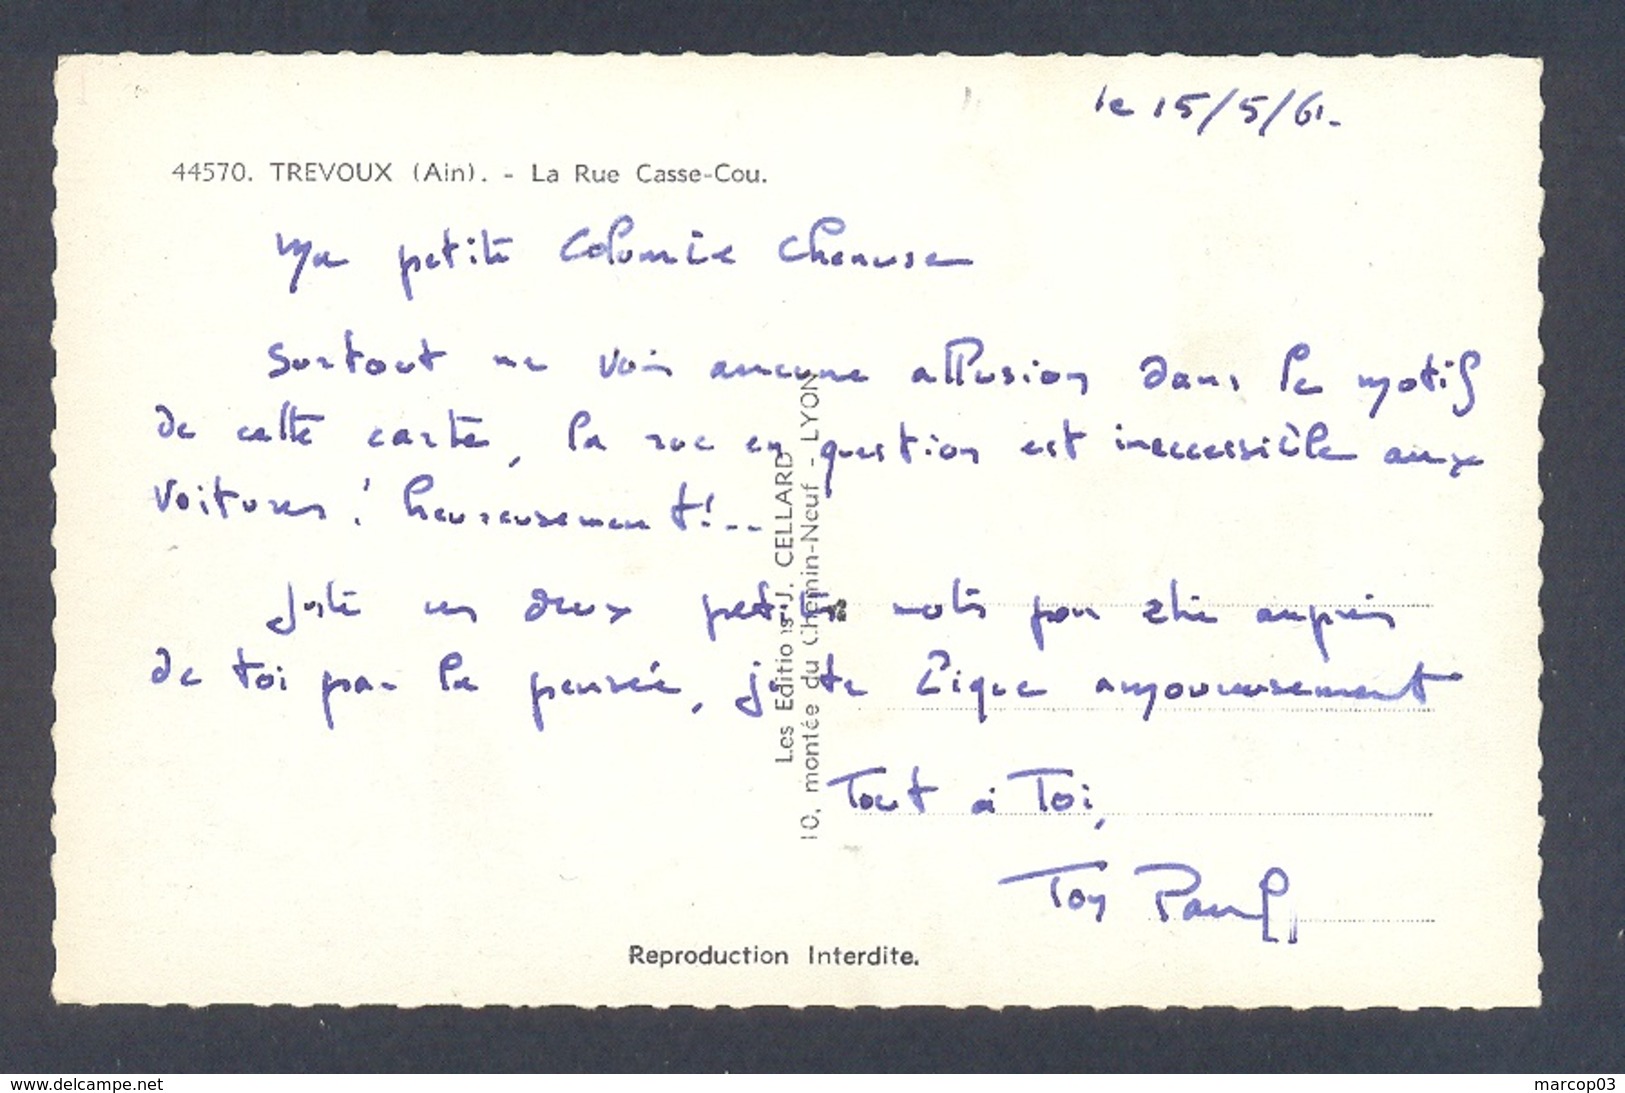 le 15/5/61.
44570. TREVOUX (Ain). - La Rue Casse-Cou.
Ma petite
Surtout ne vois aucune allusion dans le motif
de cette carte, la rue en question est inaccessible aux
voitures ! heureusement !..
Juste ces deux petits mots pour être auprès
de toi par la pensée, je te bique amoureusement
Tout à Toi,
Ton Paul
Les Editions J. CELLARD
10, montée du Chemin-Neuf - LYON
Reproduction Interdite.
www.delcampe.net
marcop03